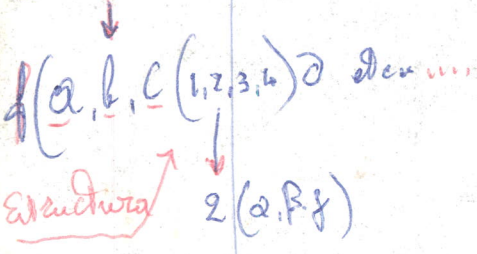 f(a, b, c (1,2,3,4) d etc....
Estructura
2 (α, β, γ)